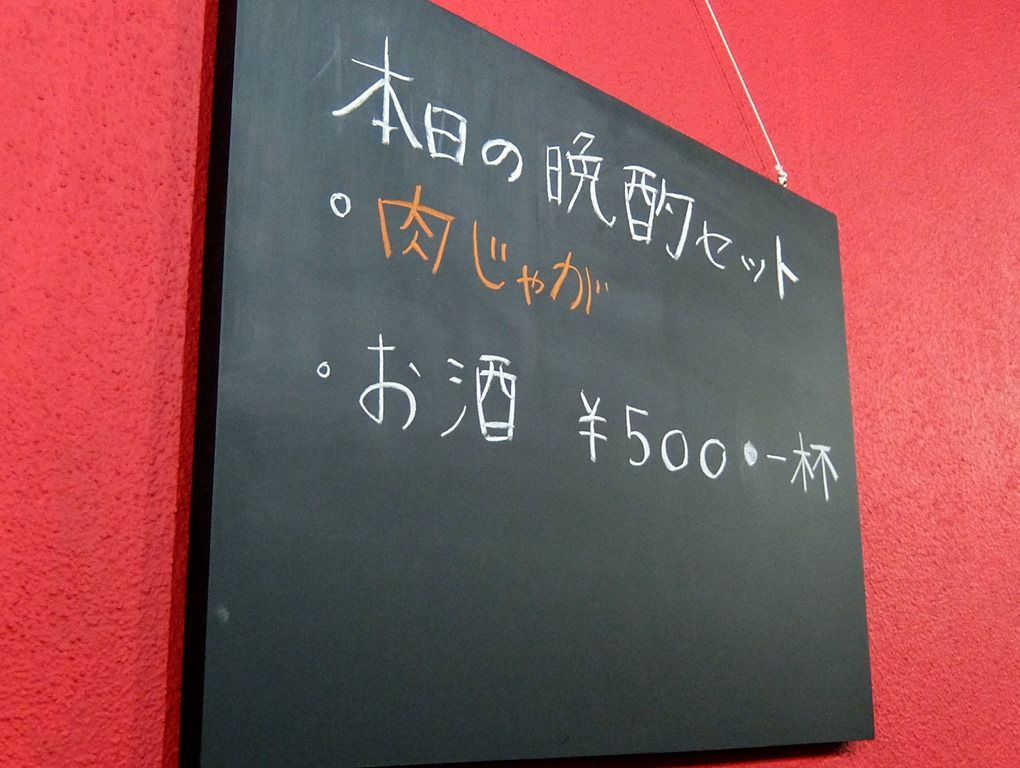 本日の晩酌セット
○ 肉じゃが
○ お酒 ¥500・一杯